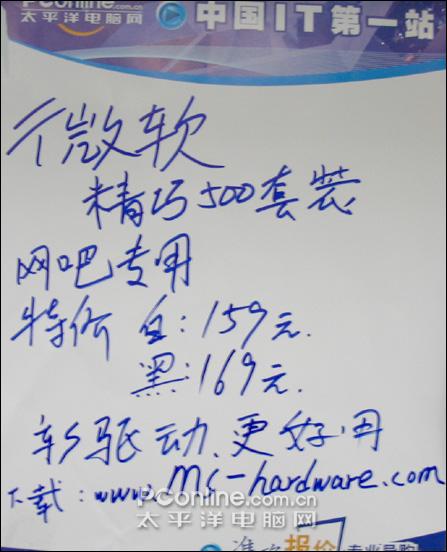 PConline.com.cn
太平洋电脑网
中国IT第一站
微软
精巧500套装
网吧专用
特价 白：159元.
黑：169元.
新驱动、更好用
下载：www.mc-hardware.com
PConline.com.cn
太平洋电脑网
准 报价 专业导购